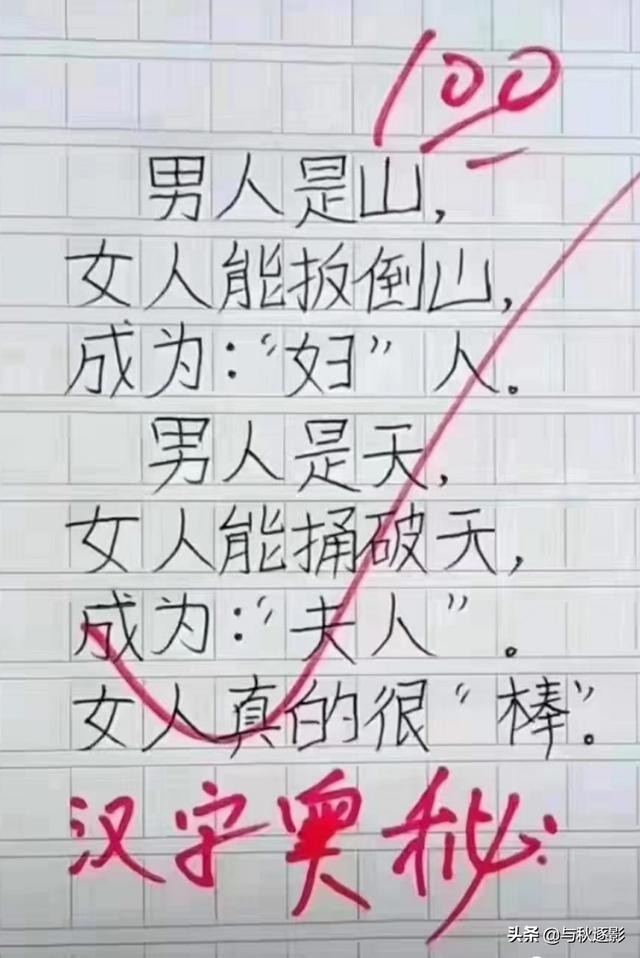 100
男人是山,
女人能扳倒山,
成为:“妇”人。
男人是天,
女人能捅破天,
成为:“夫人”。
女人真的很“棒”。
汉字奥秘
头条 @与秋逐影